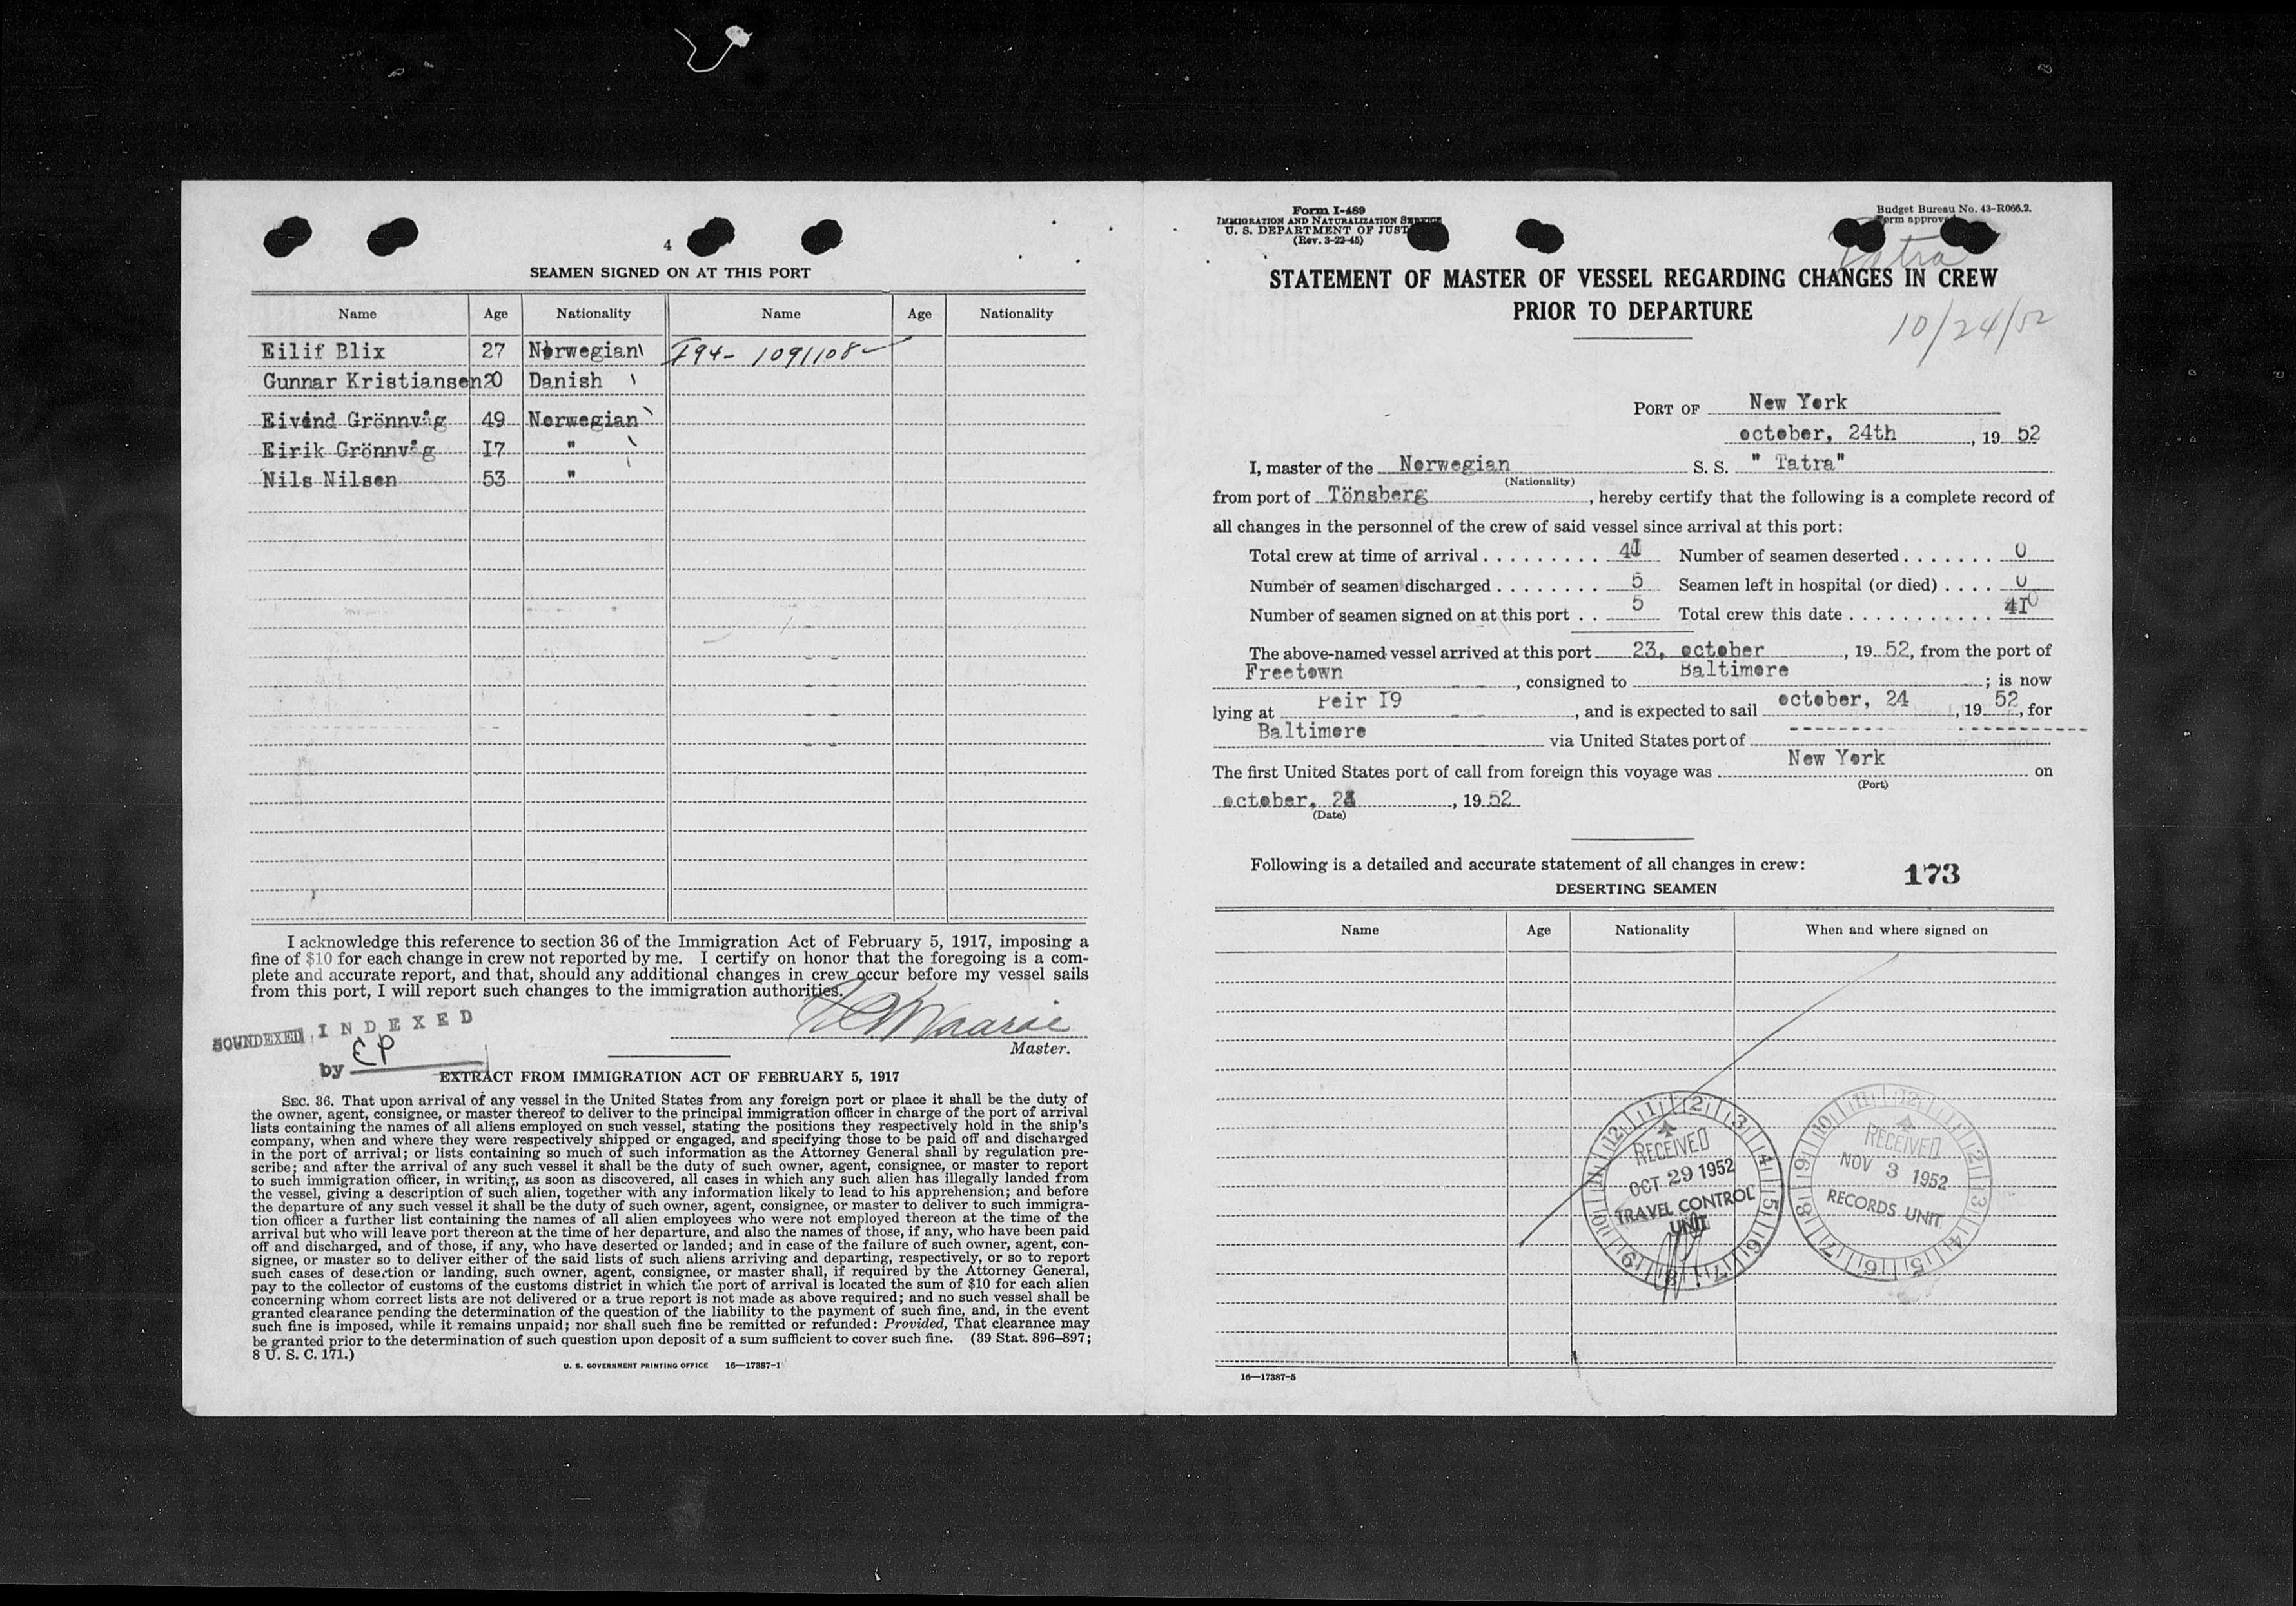 4
SEAMEN SIGNED ON AT THIS PORT
Name Age Nationality Name Age Nationality
Eilif Blix 27 Norwegian I94- 1091108
Gunnar Kristiansen 20 Danish
Eivind Grönnvåg 49 Norwegian
Eirik Grönnvåg I7 "
Nils Nilsen 53 "
I acknowledge this reference to section 36 of the Immigration Act of February 5, 1917, imposing a
fine of $10 for each change in crew not reported by me. I certify on honor that the foregoing is a com-
plete and accurate report, and that, should any additional changes in crew occur before my vessel sails
from this port, I will report such changes to the immigration authorities.
SOUNDEXED INDEXED
by EP
Master.
EXTRACT FROM IMMIGRATION ACT OF FEBRUARY 5, 1917
SEC. 36. That upon arrival of any vessel in the United States from any foreign port or place it shall be the duty of
the owner, agent, consignee, or master thereof to deliver to the principal immigration officer in charge of the port of arrival
lists containing the names of all aliens employed on such vessel, stating the positions they respectively hold in the ship's
company, when and where they were respectively shipped or engaged, and specifying those to be paid off and discharged
in the port of arrival; or lists containing so much of such information as the Attorney General shall by regulation pre-
scribe; and after the arrival of any such vessel it shall be the duty of such owner, agent, consignee, or master to report
to such immigration officer, in writing, as soon as discovered, all cases in which any such alien has illegally landed from
the vessel, giving a description of such alien, together with any information likely to lead to his apprehension; and before
the departure of any such vessel it shall be the duty of such owner, agent, consignee, or master to deliver to such immigra-
tion officer a further list containing the names of all alien employees who were not employed thereon at the time of the
arrival but who will leave port thereon at the time of her departure, and also the names of those, if any, who have been paid
off and discharged, and of those, if any, who have deserted or landed; and in case of the failure of such owner, agent, con-
signee, or master so to deliver either of the said lists of such aliens arriving and departing, respectively, or so to report
such cases of desertion or landing, such owner, agent, consignee, or master shall, if required by the Attorney General,
pay to the collector of customs of the customs district in which the port of arrival is located the sum of $10 for each alien
concerning whom correct lists are not delivered or a true report is not made as above required; and no such vessel shall be
granted clearance pending the determination of the question of the liability to the payment of such fine, and, in the event
such fine is imposed, while it remains unpaid; nor shall such fine be remitted or refunded: Provided, That clearance may
be granted prior to the determination of such question upon deposit of a sum sufficient to cover such fine. (39 Stat. 896–897;
8 U. S. C. 171.)
U. S. GOVERNMENT PRINTING OFFICE 16—17387-1
Form I-489
IMMIGRATION AND NATURALIZATION SERVICE
U. S. DEPARTMENT OF JUST
(Rev. 3-22-45)
Budget Bureau No. 43-R066.2.
Form approve
Tatra
STATEMENT OF MASTER OF VESSEL REGARDING CHANGES IN CREW
PRIOR TO DEPARTURE
10/24/52
PORT OF New York
october, 24th, 19 52
I, master of the Norwegian S. S. " Tatra"
(Nationality)
from port of Tönsberg, hereby certify that the following is a complete record of
all changes in the personnel of the crew of said vessel since arrival at this port:
Total crew at time of arrival 41 Number of seamen deserted 0
Number of seamen discharged 5 Seamen left in hospital (or died) 0
Number of seamen signed on at this port 5 Total crew this date 4I
The above-named vessel arrived at this port 23, october, 19 52, from the port of
Freetown, consigned to Baltimore; is now
lying at Peir I9, and is expected to sail october, 24, 19 52, for
Baltimore via United States port of ------------
The first United States port of call from foreign this voyage was New York on
(Port)
october, 23, 19 52
(Date)
Following is a detailed and accurate statement of all changes in crew:
173
DESERTING SEAMEN
Name Age Nationality When and where signed on
RECEIVED
OCT 29 1952
TRAVEL CONTROL
UNIT
RECEIVED
NOV 3 1952
RECORDS UNIT
16—17387-5